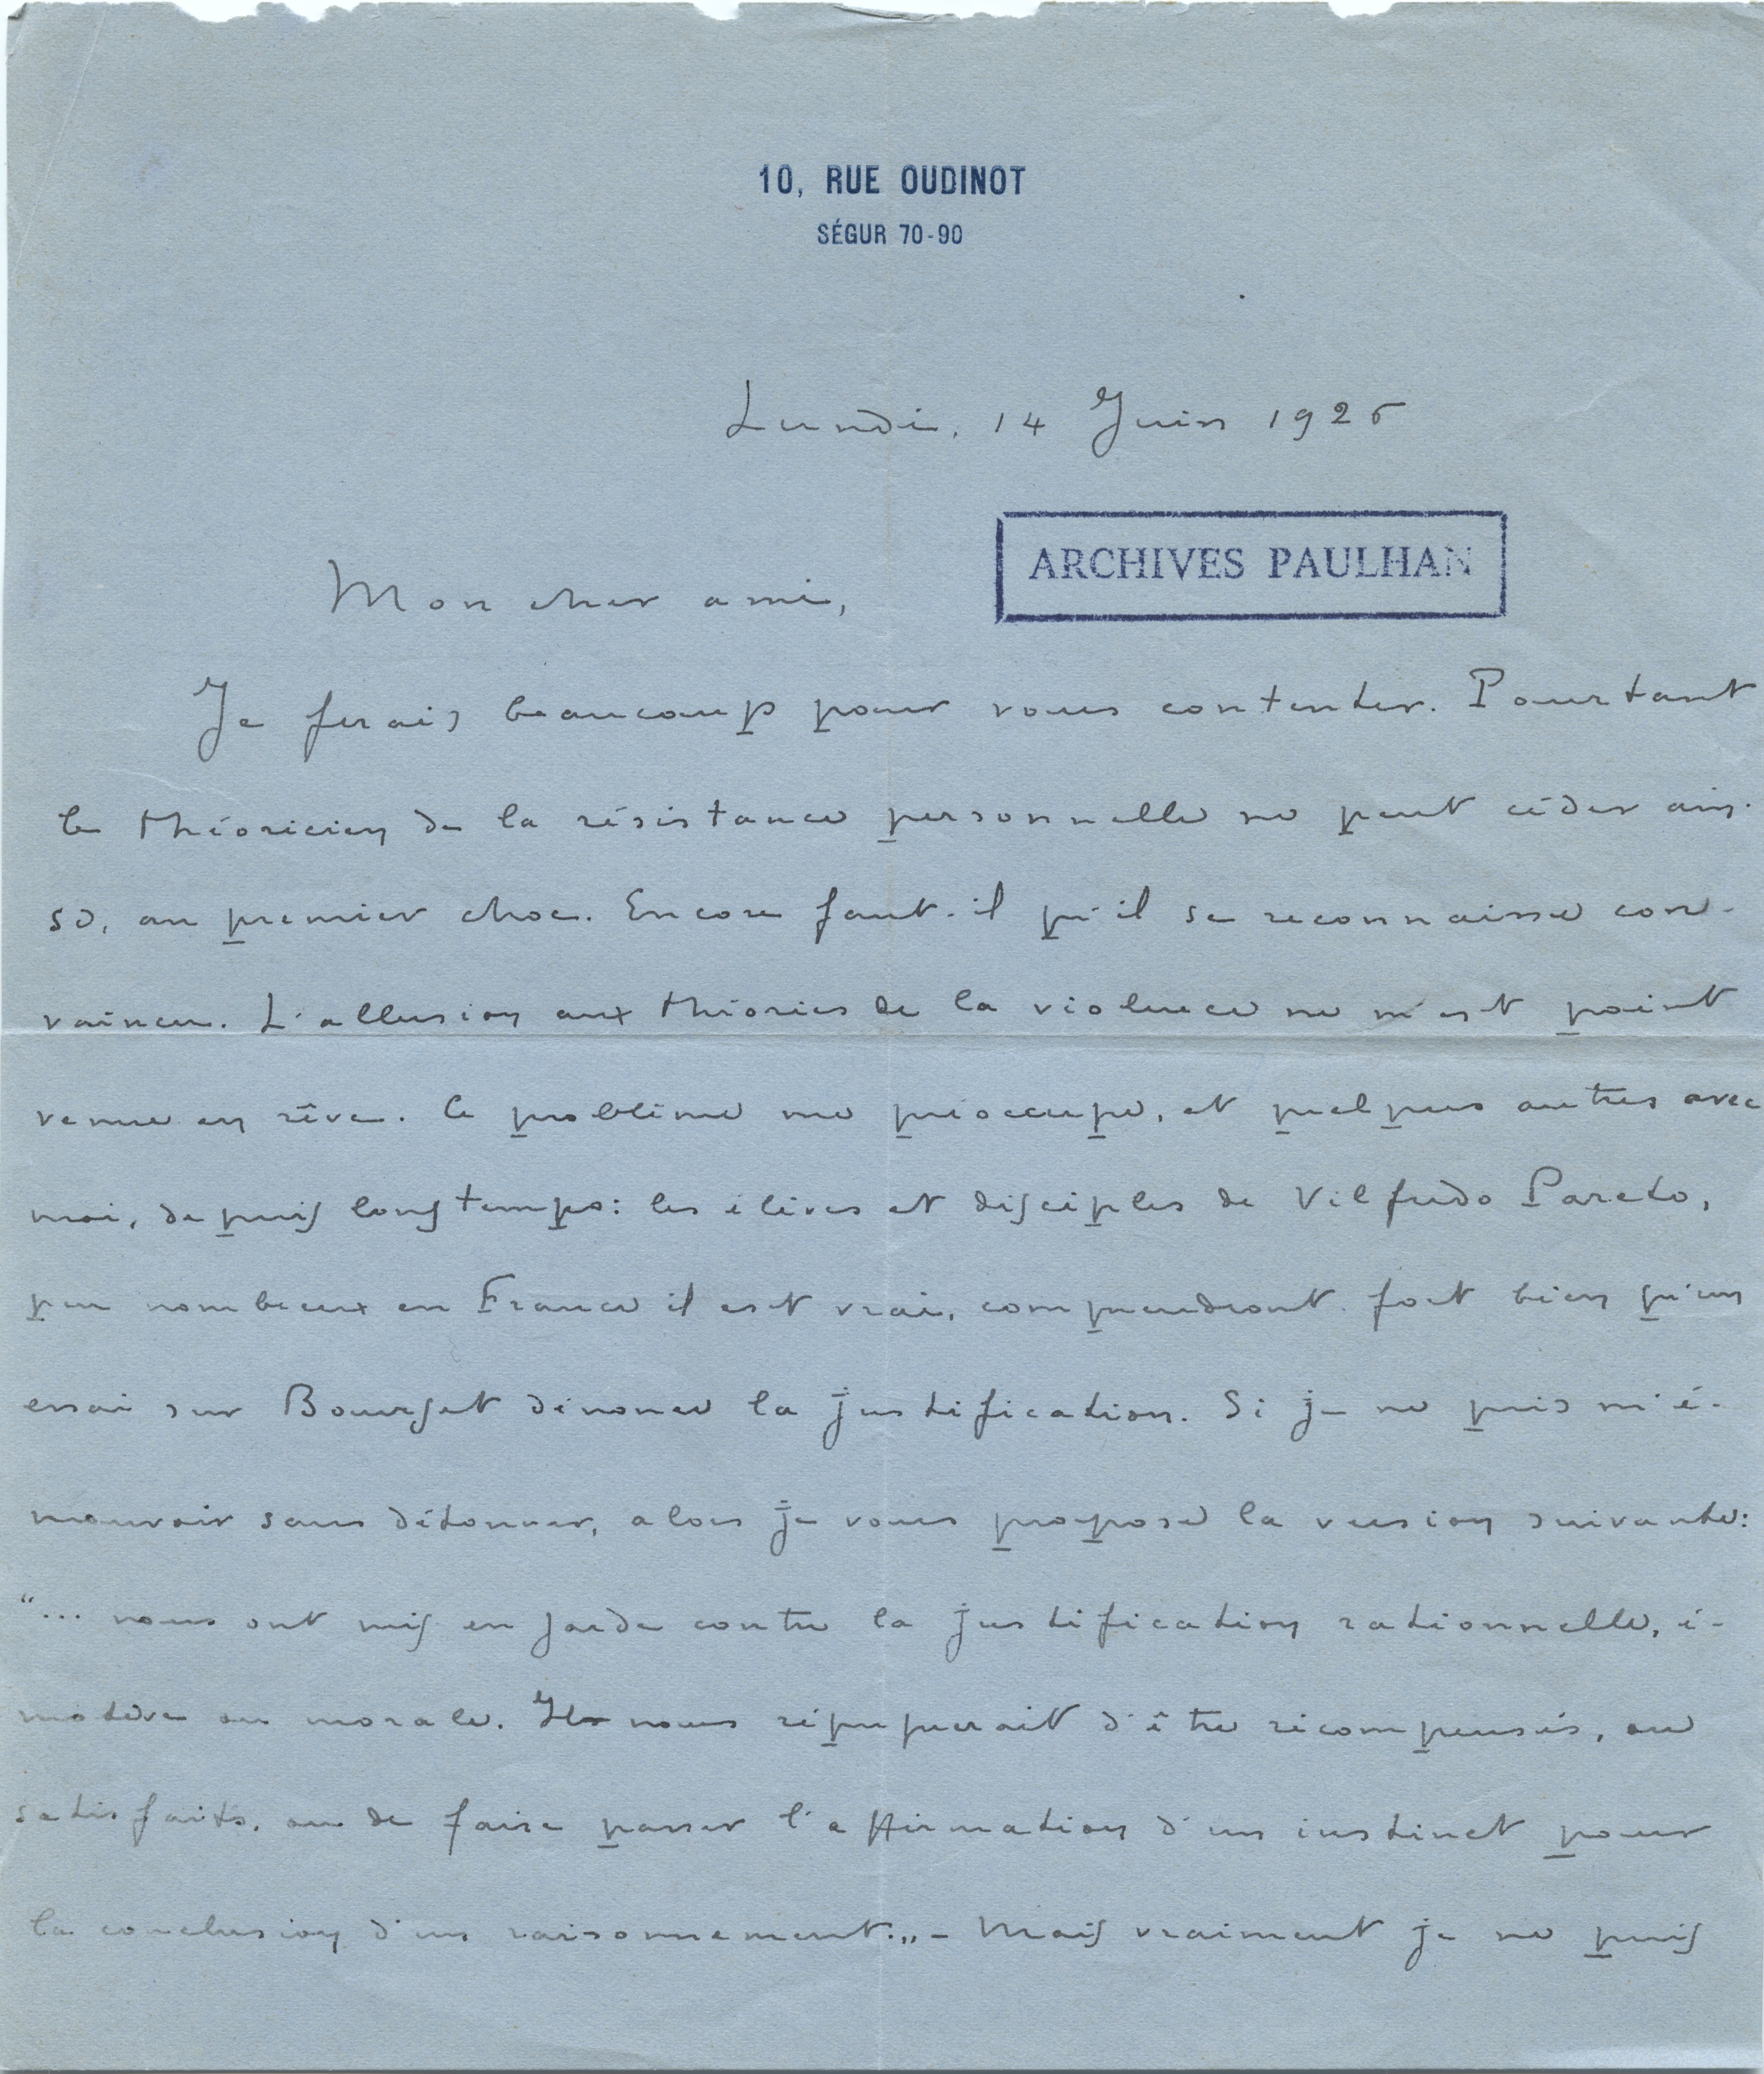 10, RUE OUDINOT
SÉGUR 70-90
Lundi, 14 Juin 1926
ARCHIVES PAULHAN
Mon cher ami,
Je ferais beaucoup pour vous contenter. Pourtant
le théoricien de la résistance personnelle ne peut céder ain-
si, au premier choc. Encore faut-il qu'il se reconnaisse con-
vaincu. L'allusion aux théories de la violence ne m'est point
venue en rêve. Ce problème me préoccupe, et quelques autres avec
moi, depuis longtemps: les élèves et disciples de Vilfredo Pareto,
peu nombreux en France il est vrai, comprendront fort bien qu'un
essai sur Bourget dénonce la justification. Si je ne puis m'é-
mouvoir sans détonner, alors je vous propose la version suivante:
"... nous ont mis en garde contre la justification rationnelle, é-
motive ou morale. Il nous répugnerait d'être récompensés, ou
satisfaits, ou de faire passer l'affirmation d'un instinct pour
la conclusion d'un raisonnement." - Mais vraiment je ne puis